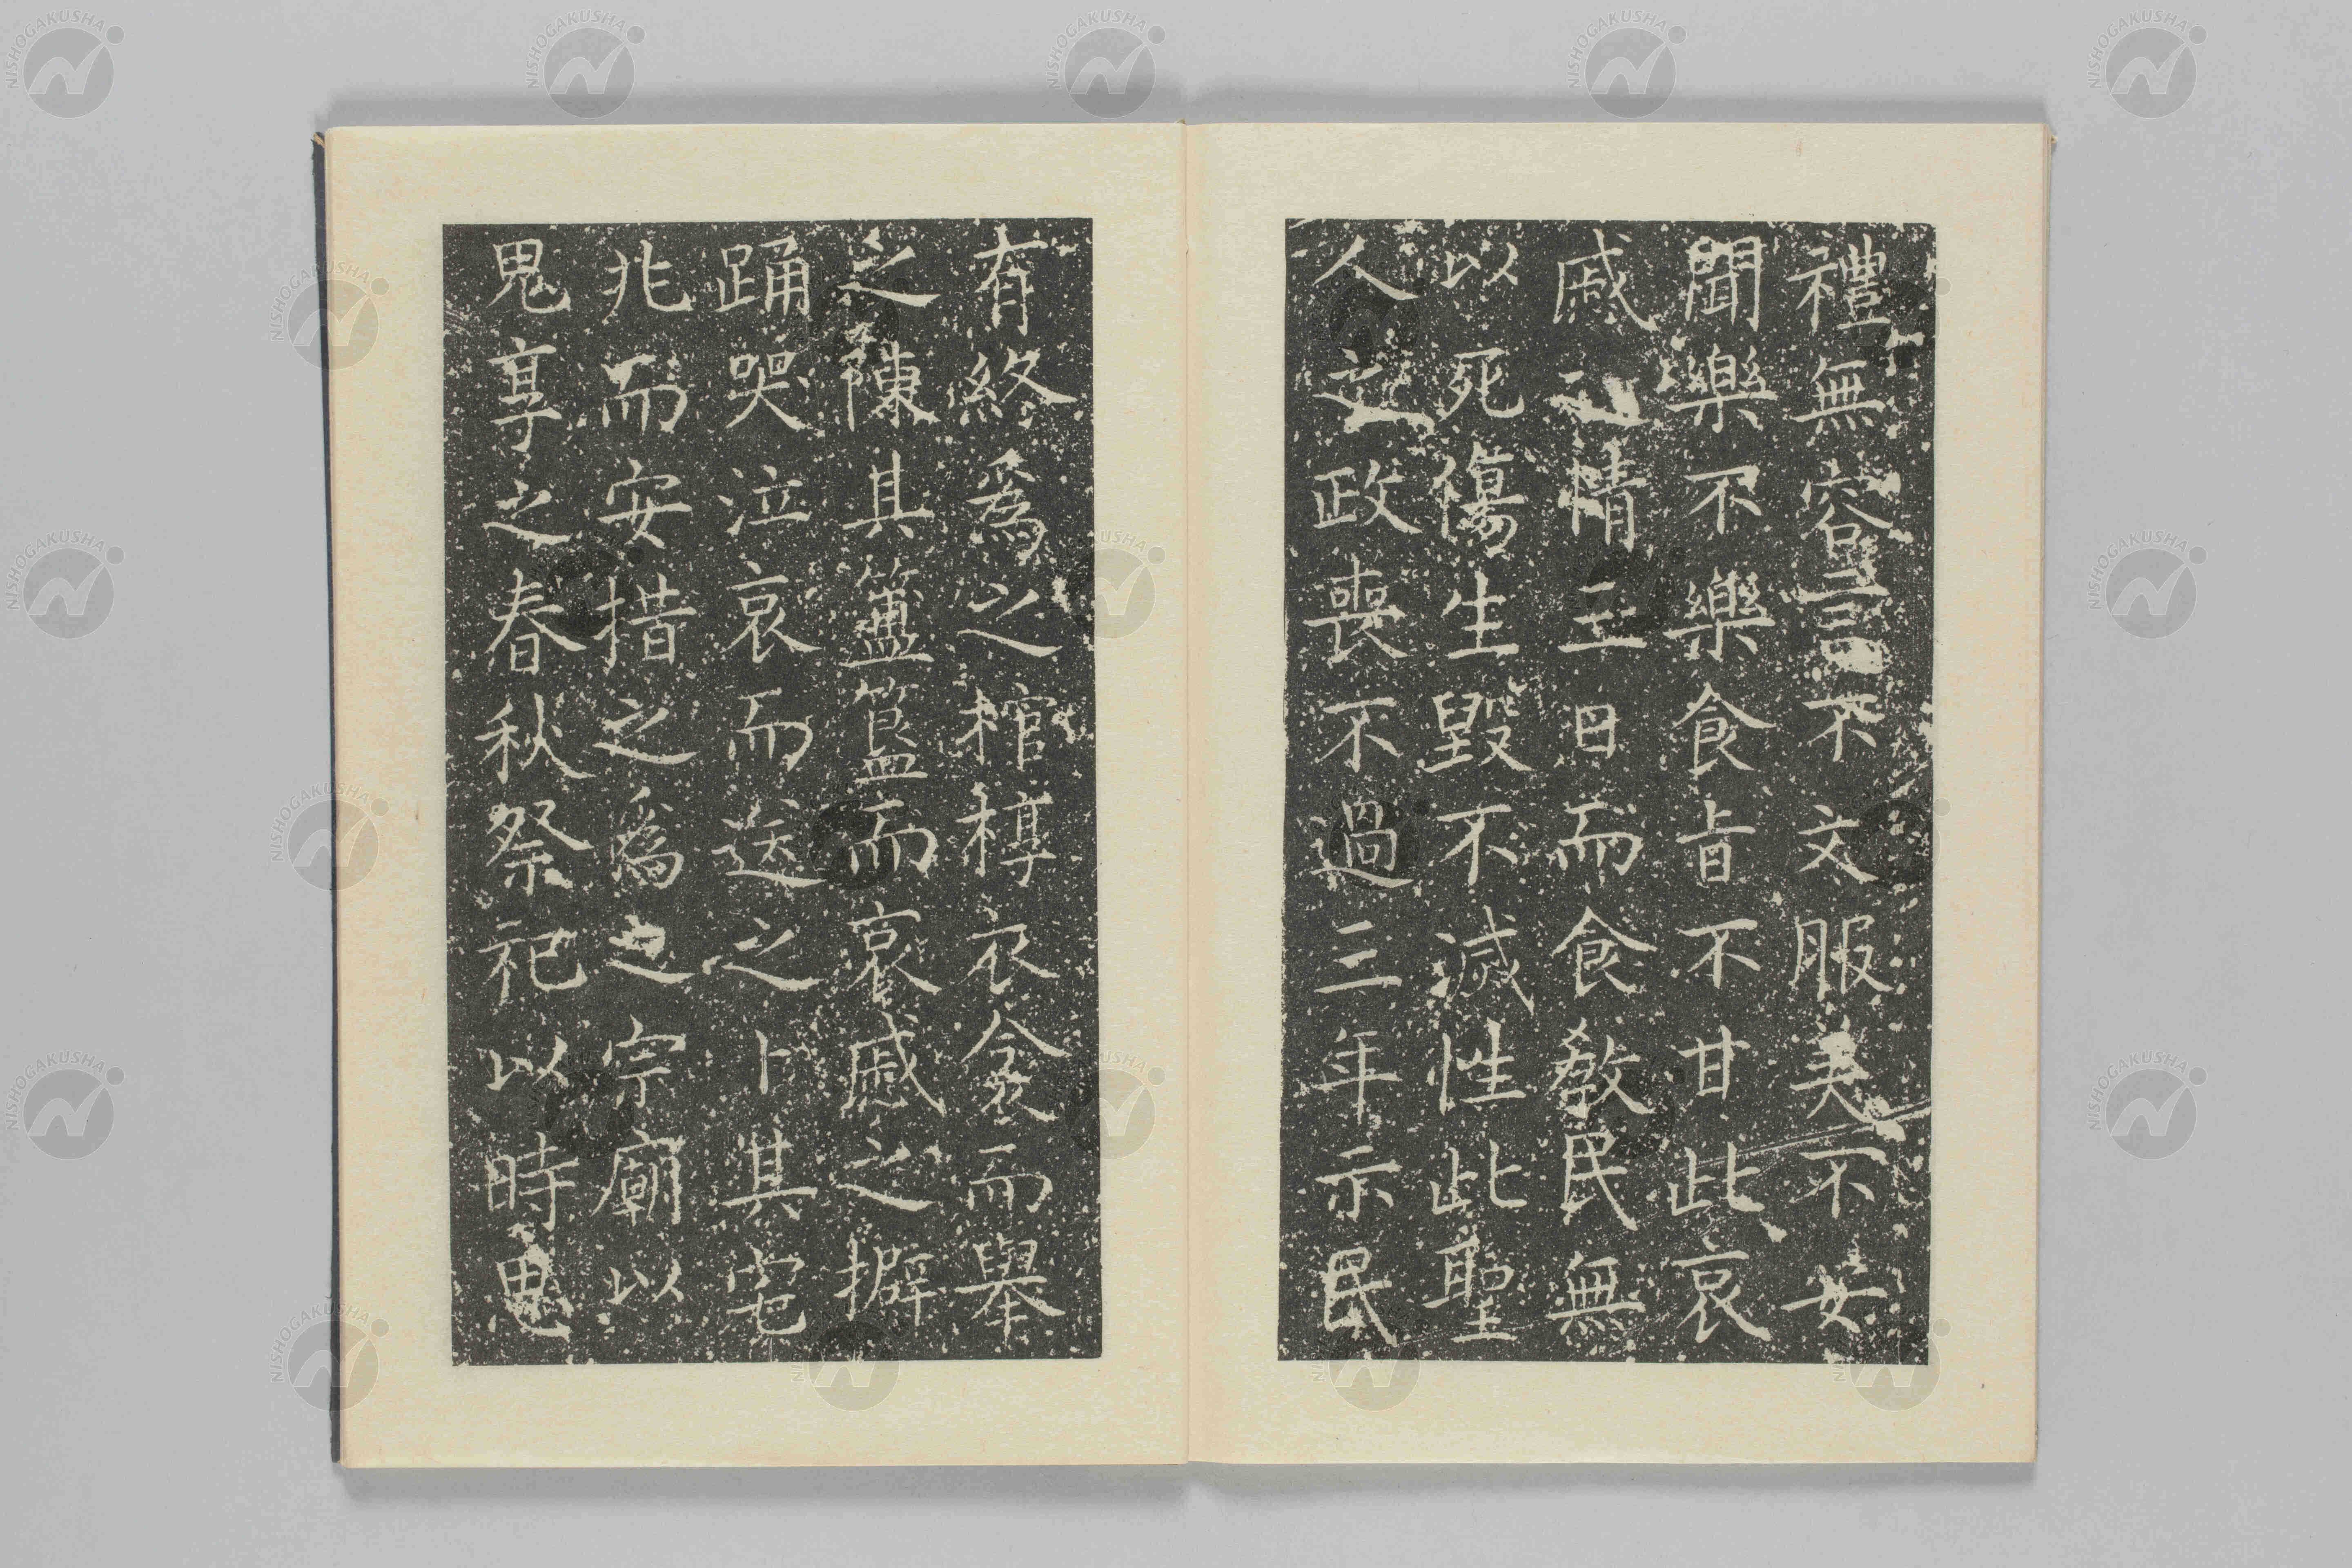 禮無容言不文服美不安
聞樂不樂食旨不甘此哀
戚之情三日而食敎民無
以死傷生毀不滅性此聖
人之政喪不過三年示民
有終爲之棺椁衣衾而舉
之陳其簠簋而哀戚之擗
踊哭泣哀而送之卜其宅
兆而安措之爲之宗廟以
鬼享之春秋祭祀以時思
NISHOGAKUSHA